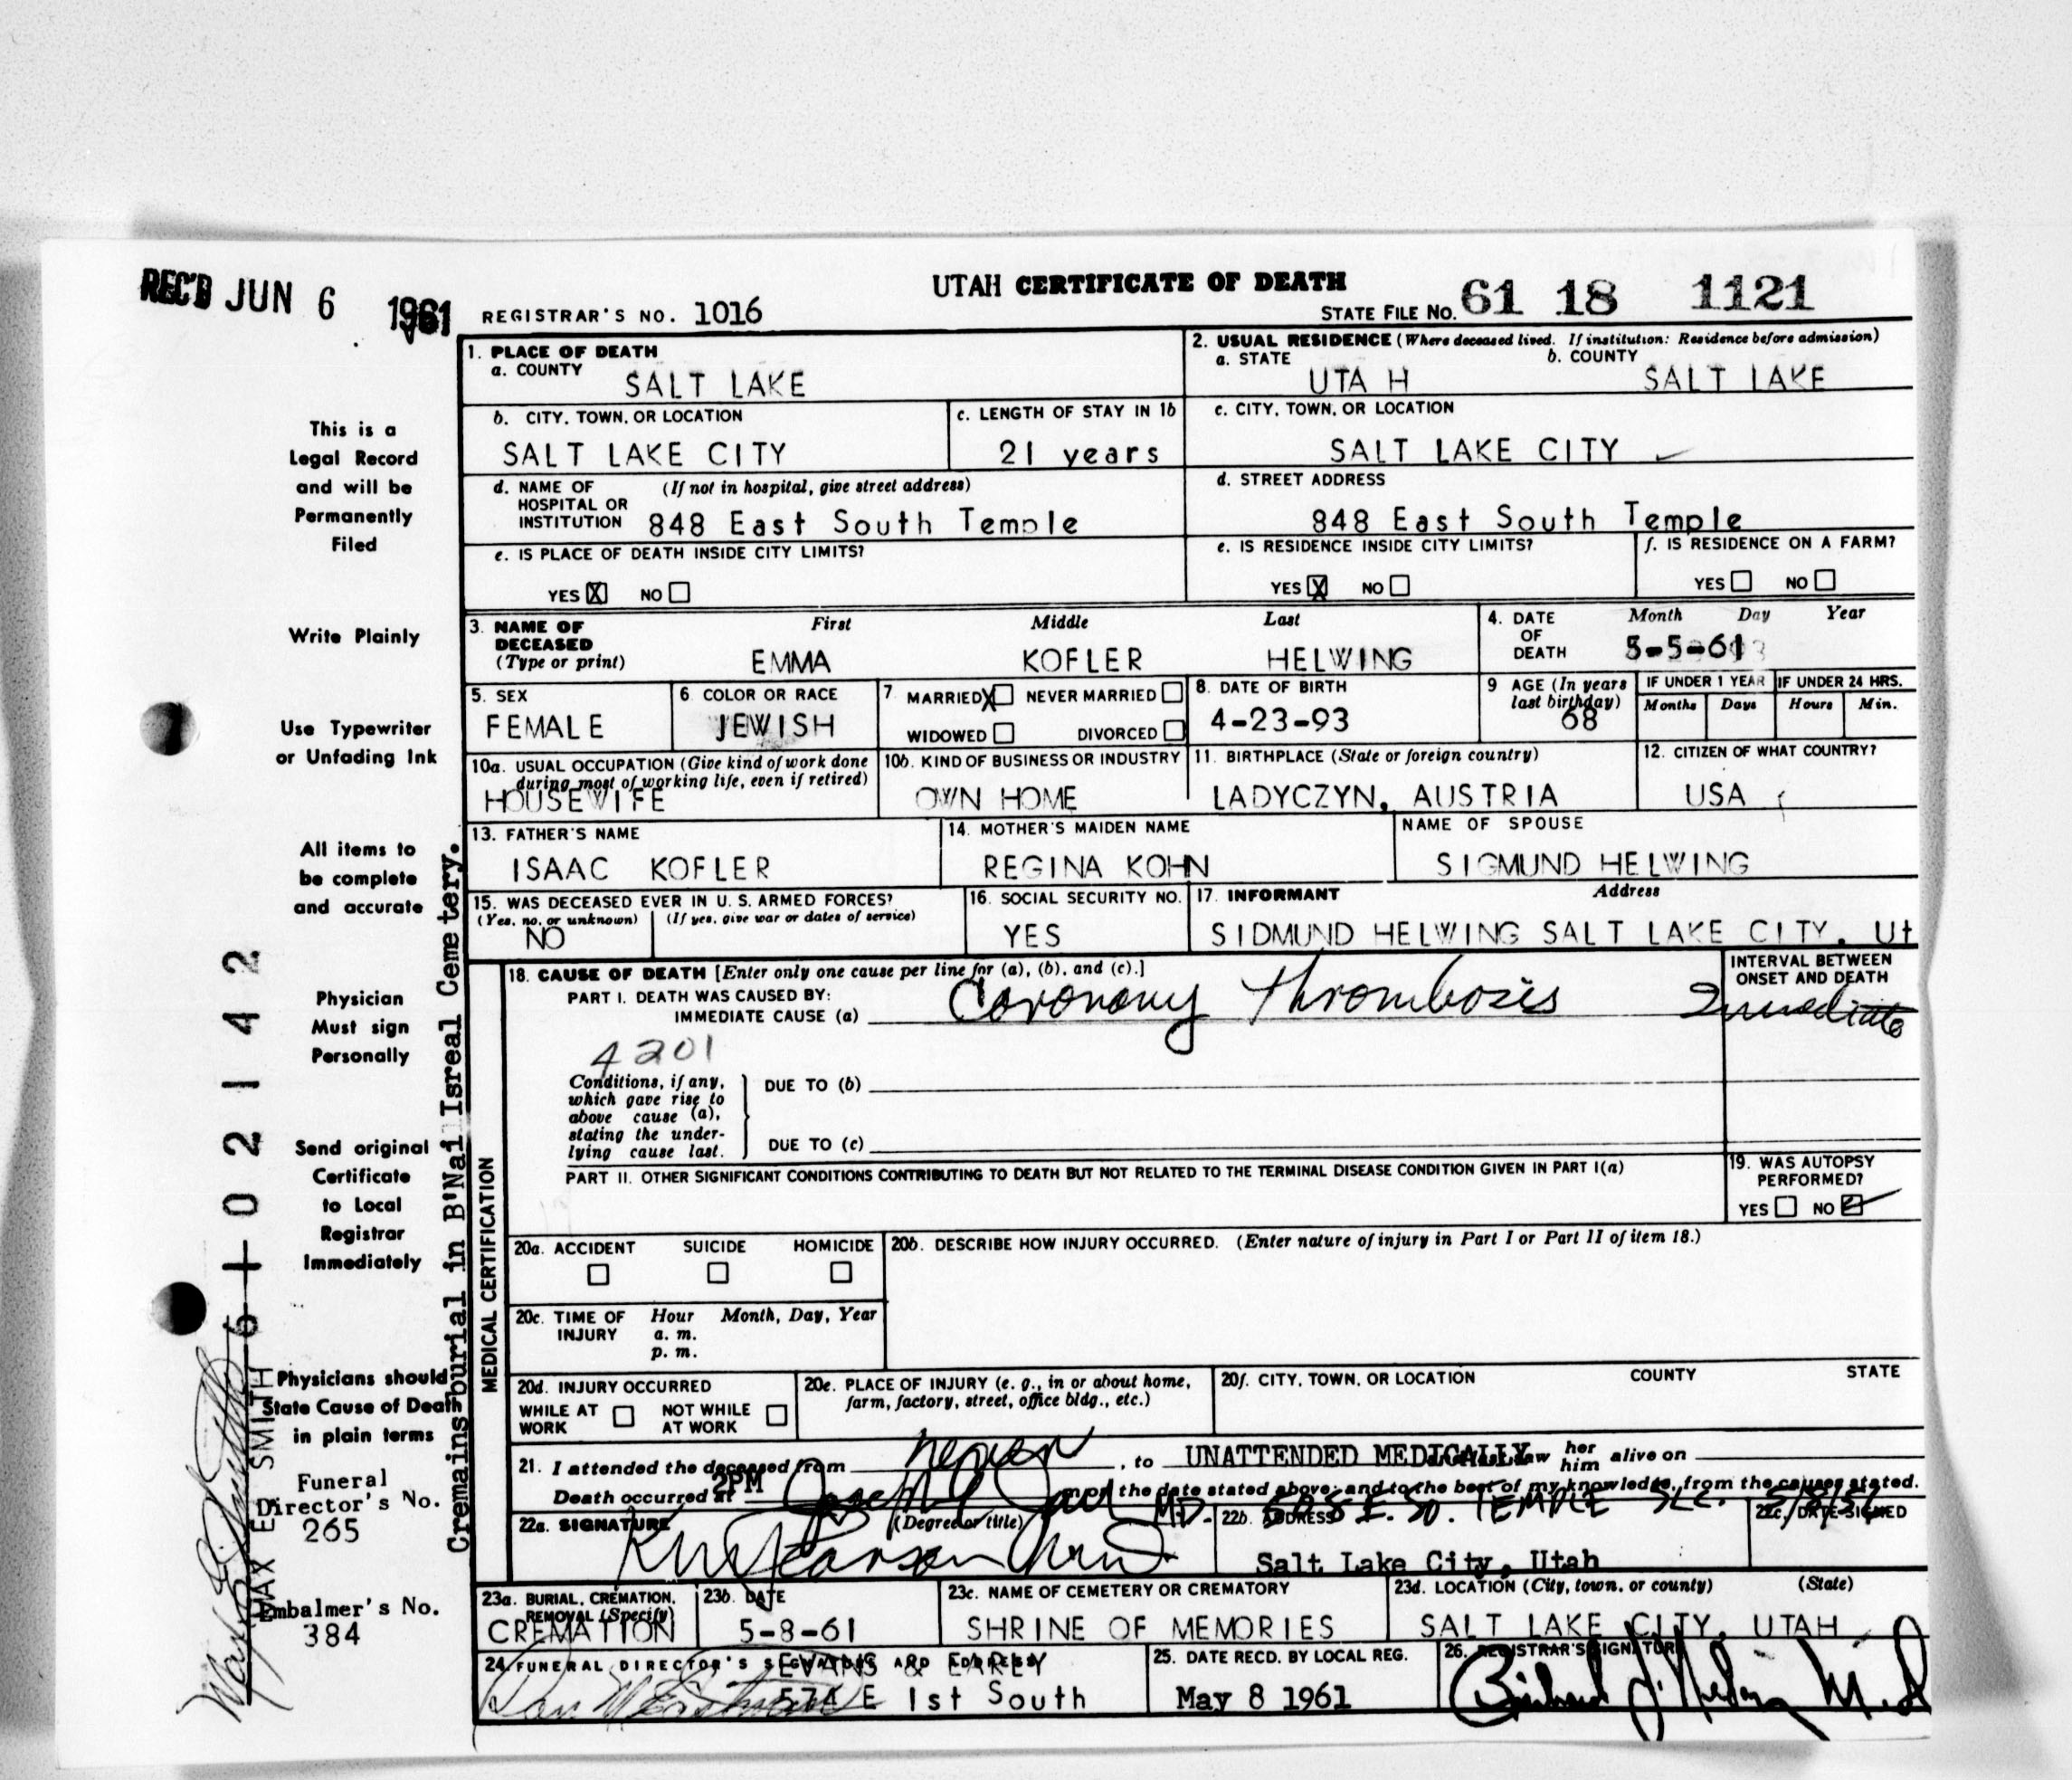 REC'D JUN 6 1961
UTAH CERTIFICATE OF DEATH
REGISTRAR'S NO. 1016
STATE FILE NO. 61 18 1121
1. PLACE OF DEATH
a. COUNTY
SALT LAKE
2. USUAL RESIDENCE (Where deceased lived. If institution: Residence before admission)
a. STATE
UTAH
b. COUNTY
SALT LAKE
b. CITY, TOWN, OR LOCATION
SALT LAKE CITY
c. LENGTH OF STAY IN 1b
21 years
c. CITY, TOWN, OR LOCATION
SALT LAKE CITY
d. NAME OF HOSPITAL OR INSTITUTION
(If not in hospital, give street address)
848 East South Temple
d. STREET ADDRESS
848 East South Temple
e. IS PLACE OF DEATH INSIDE CITY LIMITS?
YES X NO
e. IS RESIDENCE INSIDE CITY LIMITS?
YES X NO
f. IS RESIDENCE ON A FARM?
YES NO
3. NAME OF DECEASED
(Type or print)
First Middle Last
EMMA KOFLER HELWING
4. DATE OF DEATH
Month Day Year
5-5-61
5. SEX
FEMALE
6 COLOR OR RACE
JEWISH
7 MARRIED X NEVER MARRIED
WIDOWED DIVORCED
8. DATE OF BIRTH
4-23-93
9 AGE (In years last birthday)
68
IF UNDER 1 YEAR
Months Days
IF UNDER 24 HRS.
Hours Min.
10a. USUAL OCCUPATION (Give kind of work done during most of working life, even if retired)
HOUSEWIFE
10b. KIND OF BUSINESS OR INDUSTRY
OWN HOME
11. BIRTHPLACE (State or foreign country)
LADYCZYN, AUSTRIA
12. CITIZEN OF WHAT COUNTRY?
USA
13. FATHER'S NAME
ISAAC KOFLER
14. MOTHER'S MAIDEN NAME
REGINA KOHN
NAME OF SPOUSE
SIGMUND HELWING
15. WAS DECEASED EVER IN U. S. ARMED FORCES?
(Yes, no, or unknown) (If yes, give war or dates of service)
NO
16. SOCIAL SECURITY NO.
YES
17. INFORMANT Address
SIDMUND HELWING SALT LAKE CITY, Ut
MEDICAL CERTIFICATION
18. CAUSE OF DEATH [Enter only one cause per line for (a), (b), and (c).]
PART I. DEATH WAS CAUSED BY:
IMMEDIATE CAUSE (a) Coronary Thrombosis
INTERVAL BETWEEN ONSET AND DEATH
Immediate
4201
Conditions, if any, which gave rise to above cause (a), stating the underlying cause last.
DUE TO (b)
DUE TO (c)
PART II. OTHER SIGNIFICANT CONDITIONS CONTRIBUTING TO DEATH BUT NOT RELATED TO THE TERMINAL DISEASE CONDITION GIVEN IN PART I(a)
19. WAS AUTOPSY PERFORMED?
YES NO
20a. ACCIDENT SUICIDE HOMICIDE
20b. DESCRIBE HOW INJURY OCCURRED. (Enter nature of injury in Part I or Part II of item 18.)
20c. TIME OF INJURY
Hour Month, Day, Year
a. m.
p. m.
20d. INJURY OCCURRED
WHILE AT WORK NOT WHILE AT WORK
20e. PLACE OF INJURY (e. g., in or about home, farm, factory, street, office bldg., etc.)
20f. CITY, TOWN, OR LOCATION COUNTY STATE
21. I attended the deceased from never, to UNATTENDED MEDICALLY saw her him alive on
Death occurred at 2PM m on the date stated above; and to the best of my knowledge, from the causes stated.
22a. SIGNATURE (Degree or title) MD.
22b. ADDRESS
508 E. SO. TEMPLE SLC.
Salt Lake City, Utah
22c. DATE SIGNED
23a. BURIAL, CREMATION, REMOVAL (Specify)
CREMATION
23b. DATE
5-8-61
23c. NAME OF CEMETERY OR CREMATORY
SHRINE OF MEMORIES
23d. LOCATION (City, town, or county) (State)
SALT LAKE CITY, UTAH
24 FUNERAL DIRECTOR'S SIGNATURE AND ADDRESS
EVANS & EARLY
574 E 1st South
25. DATE RECD. BY LOCAL REG.
May 8 1961
26. REGISTRAR'S SIGNATURE
This is a
Legal Record
and will be
Permanently
Filed
Write Plainly
Use Typewriter
or Unfading Ink
All items to
be complete
and accurate
Physician
Must sign
Personally
Send original
Certificate
to Local
Registrar
Immediately
Physicians should
State Cause of Death
in plain terms
Funeral
Director's No.
265
Embalmer's No.
384
Cremains burial in B'Nai Isreal Cemetery.
MAX E. SMITH
02142